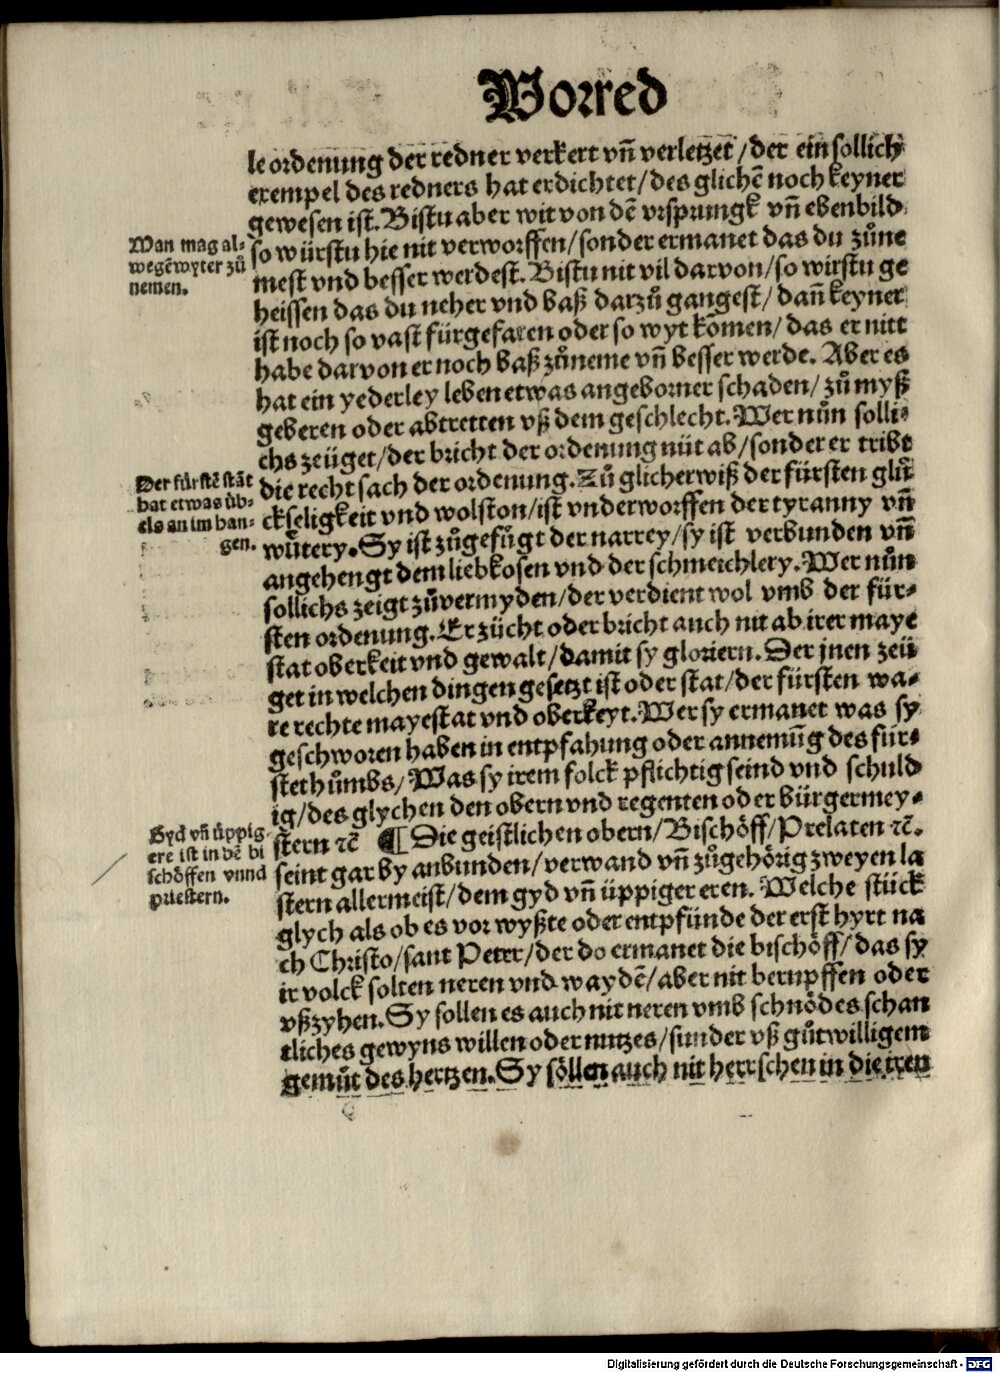 Vorred
le ordenung der redner verkert vñ verletzet / der ein sollich
exempel des redners hat erdichtet / des glichē noch keyner
gewesen ist. Bistu aber wit von dē vrsprungk vñ ebenbild
so würstu hie nit verworffen / sonder ermanet das du zůne
mest vnd besser werdest. Bistu nit vil darvon / so wirstu ge
heissen das du neher vnd baß darzů gangest / dañ keyner
ist noch so vast fürgefaren oder so wyt kōmen / das er nitt
habe darvon er noch baß zůneme vñ besser werde. Aber es
hat ein yederley leben etwas angeborner schaden / zů myß
geberen oder abtretten vß dem geschlecht. Wer nůn solli-
chs zeüget / der bricht der ordenung nüt ab / sonder er tribt
die recht sach der ordenung. Zů glicherwiß der fürsten glü
ckseligkeit vnd wolston / ist vnderworffen der tyranny vñ
wůtery. Sy ist zůgefůgt der narrey / sy ist verbunden vñ
angehengt dem liebkosen vnd der schmeichlery. Wer nůn
sollichs zeigt zůvermyden / der verdient wol vmb der für-
sten ordenung. Er zücht oder bricht auch nit ab irer maye
stat oberkeit vnd gewalt / damit sy gloriern. Der jnen zeü
get in welchen dingen gesetzt ist oder stat / der fürsten wa-
re rechte mayestat vnd oberkeyt. Wer sy ermanet was sy
geschworen haben in entpfahung oder annemūg des für-
stethůmbs / Was sy irem folck pflichtig seind vnd schuld
ig / des glychen den obern vnd regenten oder bürgermey-
stern ꝛc̄ ¶ Die geistlichen obern / Bischöff / Prelaten ꝛc̄.
seint gar by anbunden / verwand vñ zůgehörig zweyen la
stern allermeist / dem gyd vñ üppiger eren. Welche stück
glych als ob es vor wyßte oder entpfünde der erst hyrt na
ch Christo / sant Peter / der do ermanet die bischöff / das sy
ir volck solten neren vnd waydē / aber nit berupffen oder
vßzyhen. Sy sollen es auch nit neren vmb schnödes schan
tliches gewyns willen oder nutzes / sunder vß gůtwilligem
gemůt des hertzen. Sy söllen auch nit herrschen in die iren
Man mag al-
wegē wyter zů
nemen.
Der fürstē stāt
hat etwas üb-
els an im han-
gen.
Gyd vñ üppig
ere ist in dē bi
schöffen vnnd
priestern.
Digitalisierung gefördert durch die Deutsche Forschungsgemeinschaft - DFG